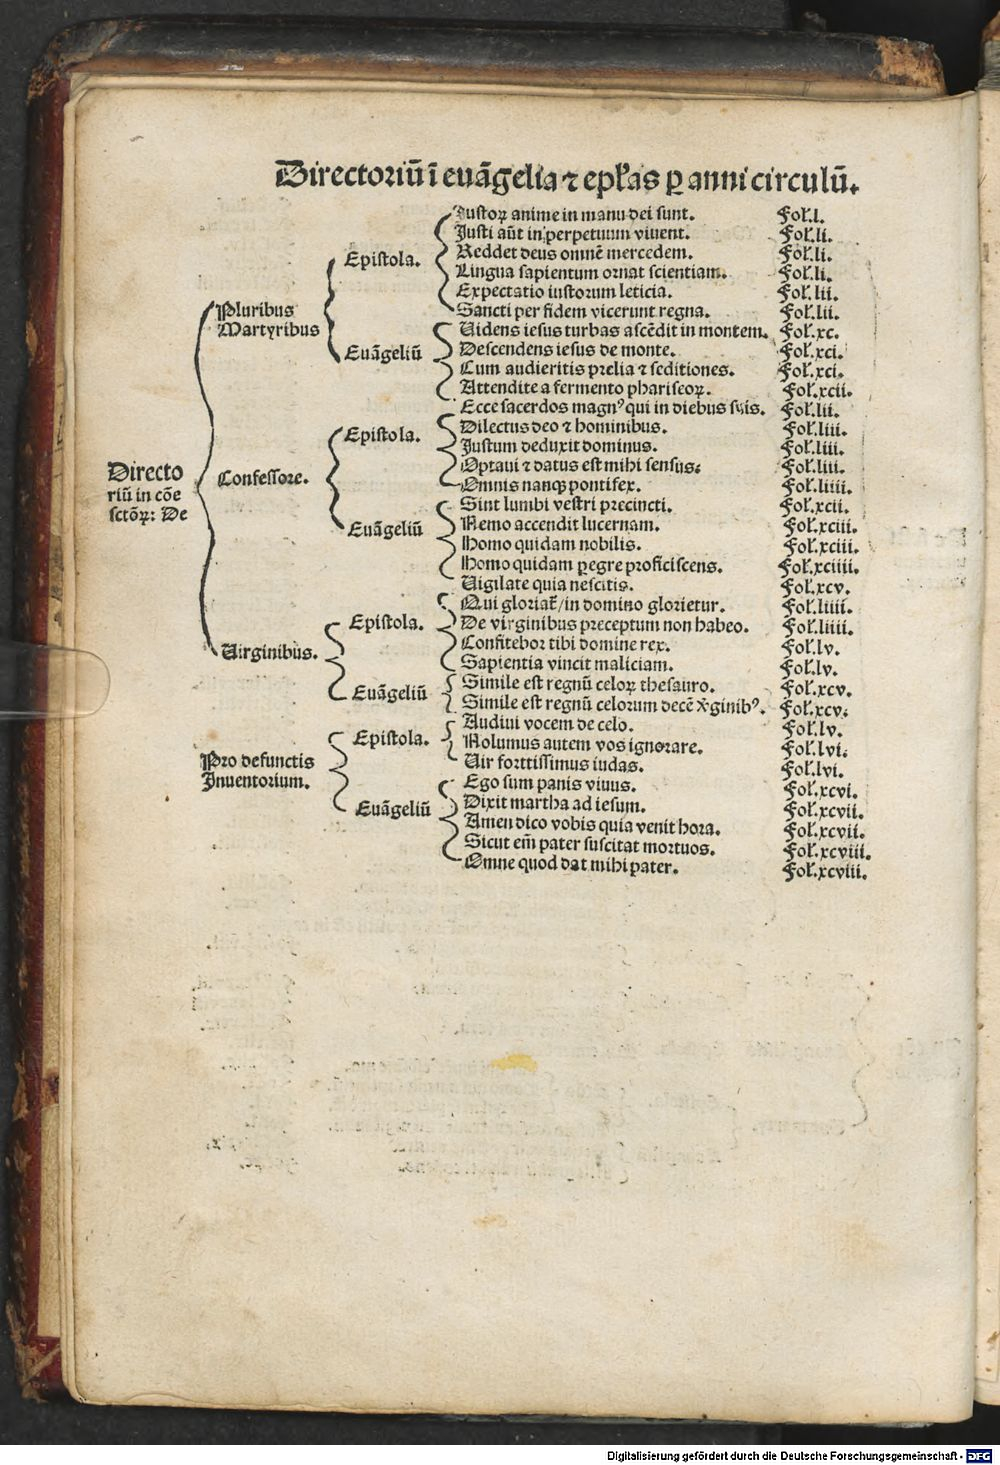 Directoriū ī euāgelia ⁊ ep̄łas ꝑ anni circulū.
Directo
riū in cōe
sctōꝝ: De
Pluribus
Martyribus
Epistola.
Iustoꝝ anime in manu dei sunt. Foł.l.
Justi aūt in perpetuum viuent. Foł.li.
Reddet deus omnē mercedem. Foł.li.
Lingua sapientum ornat scientiam. Foł.li.
Expectatio iustorum leticia. Foł.lii.
Sancti per fidem vicerunt regna. Foł.lii.
Euāgeliū
Uidens iesus turbas ascēdit in montem. Foł.xc.
Descendens iesus de monte. Foł.xci.
Cum audieritis prelia ⁊ seditiones. Foł.xci.
Attendite a fermento phariseoꝝ. Foł.xcii.
Confessore.
Epistola.
Ecce sacerdos magnꝰ qui in diebus suis. Foł.lii.
Dilectus deo ⁊ hominibus. Foł.liii.
Justum deduxit dominus. Foł.liii.
Optaui ⁊ datus est mihi sensus: Foł.liii.
Omnis nanqꝫ pontifex. Foł.liiii.
Euāgeliū
Sint lumbi vestri precincti. Foł.xcii.
Nemo accendit lucernam. Foł.xciii.
Homo quidam nobilis. Foł.xciii.
Homo quidam ꝑegre proficiscens. Foł.xciiii.
Uigilate quia nescitis. Foł.xcv.
Uirginibus.
Epistola.
Qui gloriat̄/in domino glorietur. Foł.liiii.
De virginibus preceptum non habeo. Foł.liiii.
Confitebor tibi domine rex. Foł.lv.
Sapientia vincit maliciam. Foł.lv.
Euāgeliū
Simile est regnū celoꝝ thesauro. Foł.xcv.
Simile est regnū celorum decē ꝟginibꝰ. Foł.xcv.
Pro defunctis
Inuentorium.
Epistola.
Audiui vocem de celo. Foł.lv.
Nolumus autem vos ignorare. Foł.lvi.
Uir forttissimus iudas. Foł.lvi.
Euāgeliū
Ego sum panis viuus. Foł.xcvi.
Dixit martha ad iesum. Foł.xcvii.
Amen dico vobis quia venit hora. Foł.xcvii.
Sicut em̄ pater suscitat mortuos. Foł.xcviii.
Omne quod dat mihi pater. Foł.xcviii.
Digitalisierung gefördert durch die Deutsche Forschungsgemeinschaft - DFG